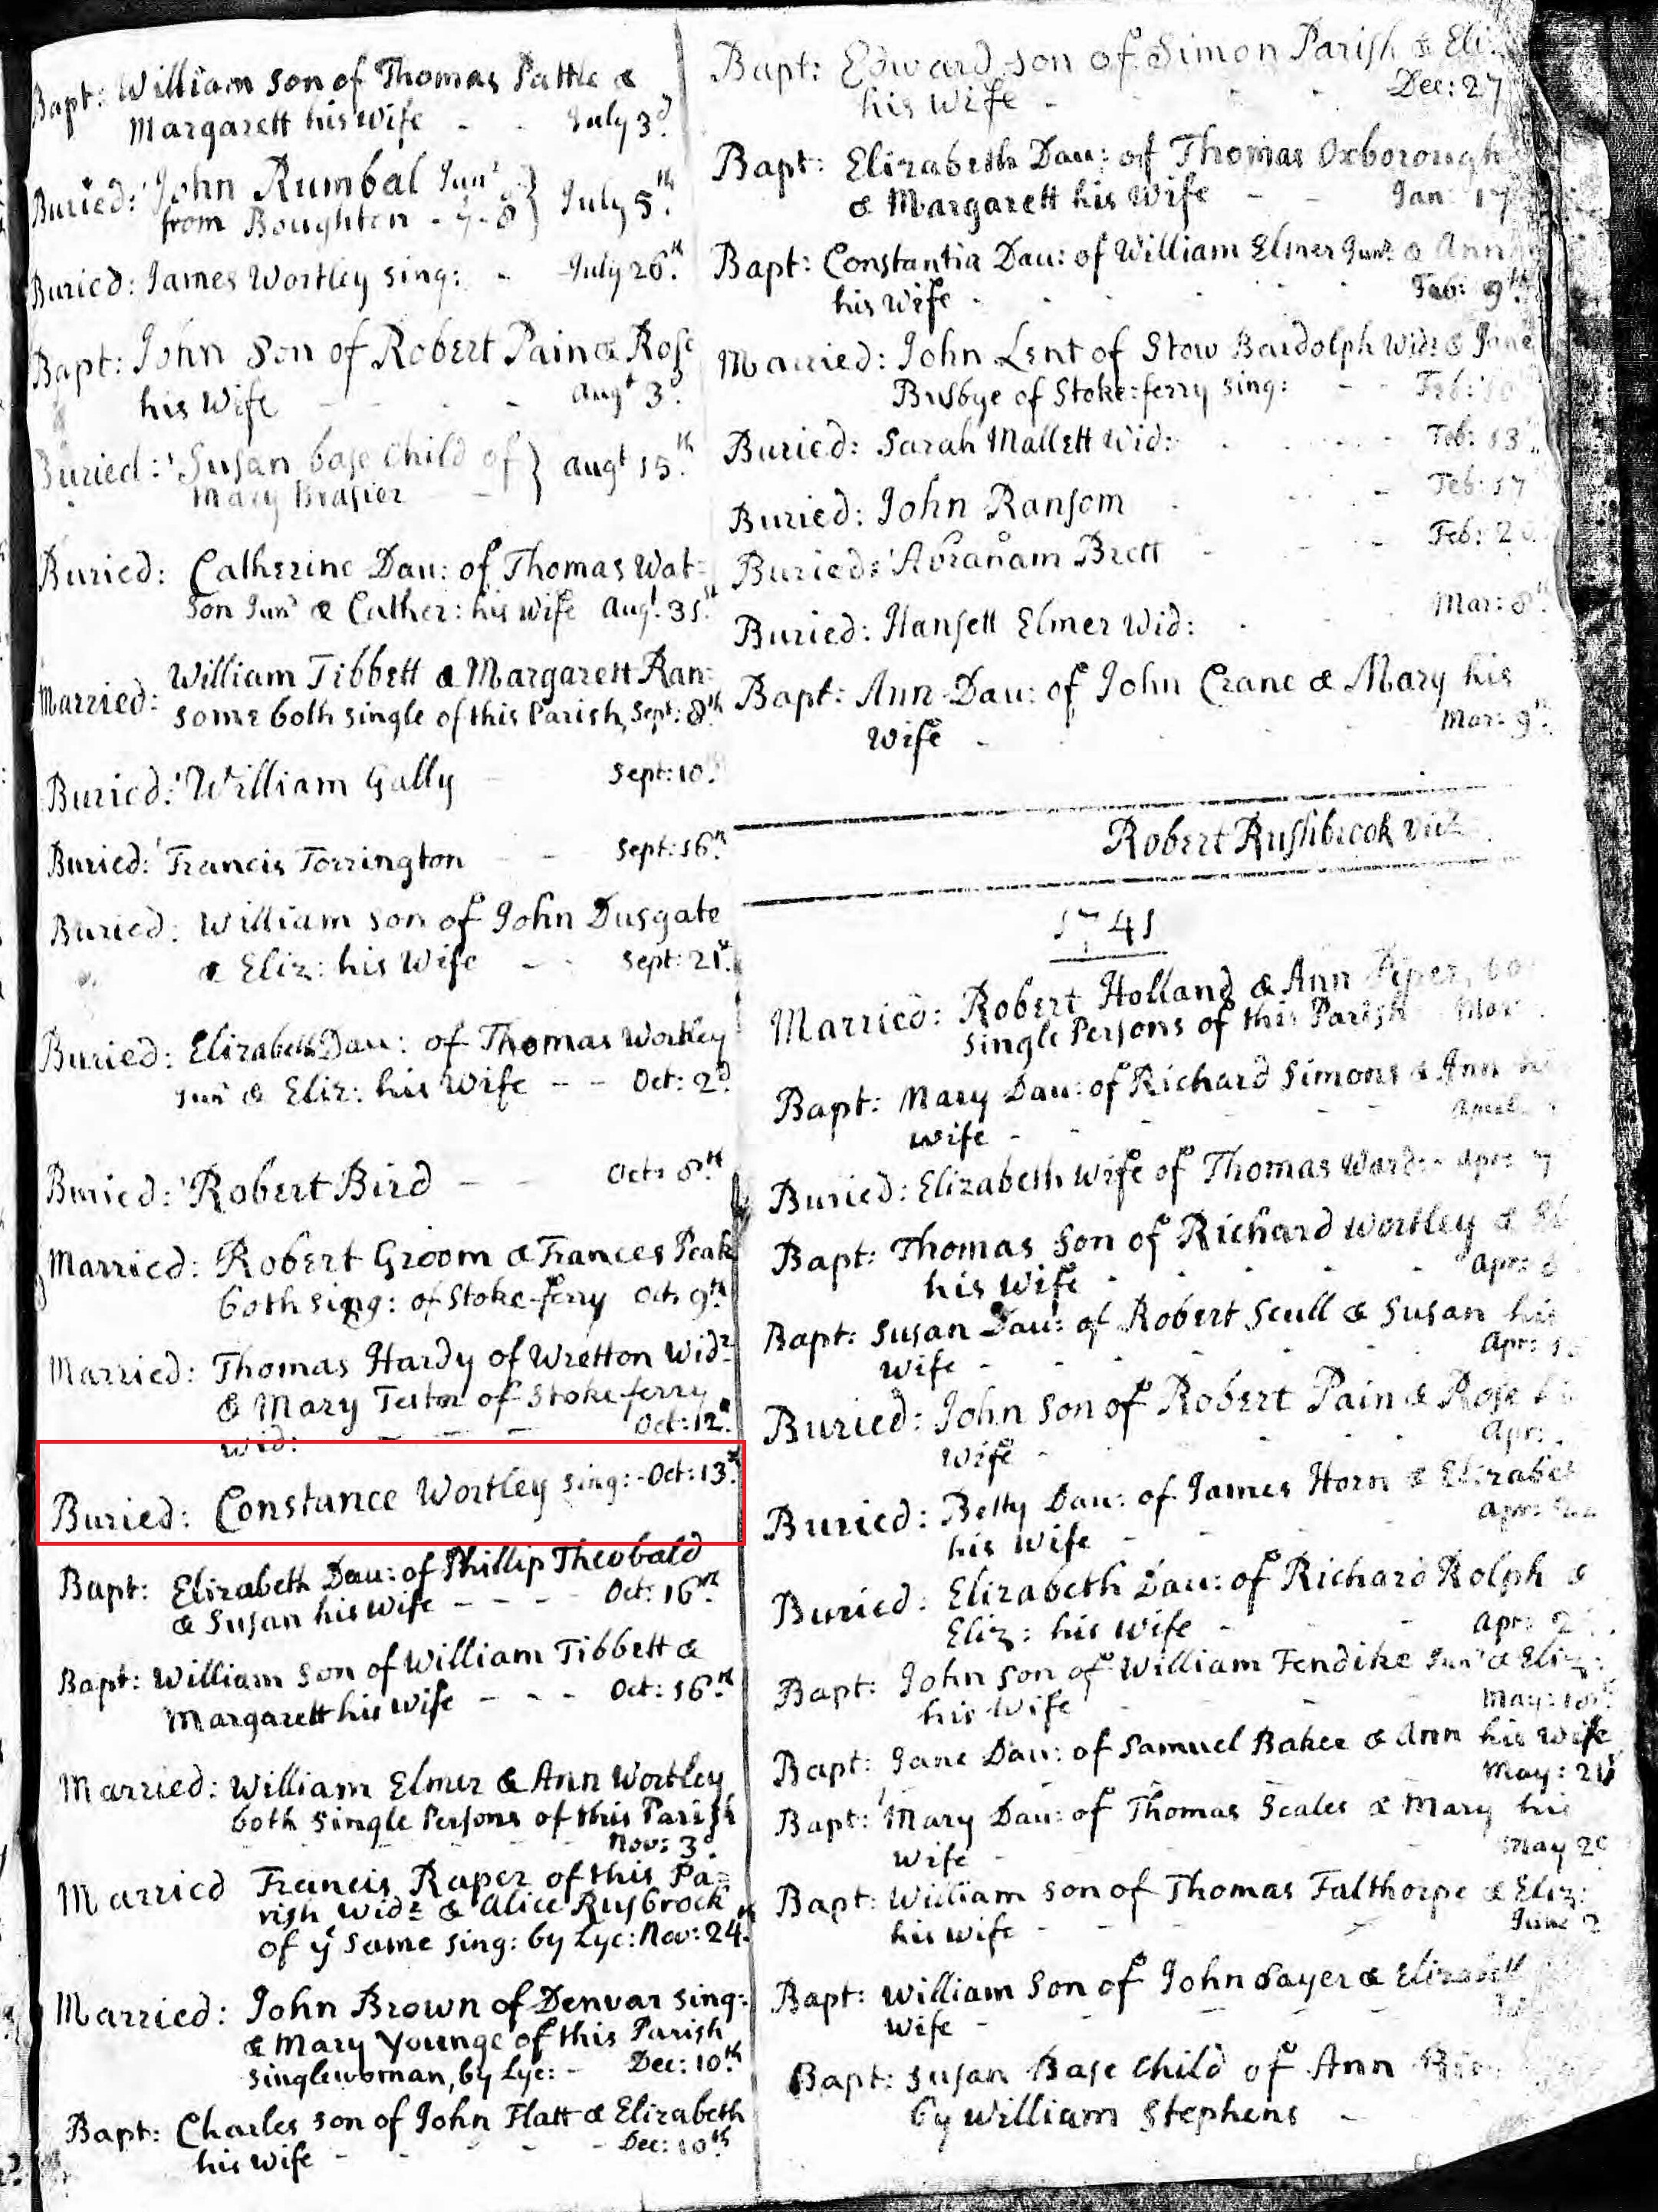 Bapt: William son of Thomas Pattle &
Margarett his Wife - - July 3d.
Buried: John Rumbal Junr
from Boughton - 7 - 8 } July 5th.
Buried: James Wortley sing: - July 26th.
Bapt: John son of Robert Pain & Rose
his Wife - - - - Augt 3d.
Buried: Susan base Child of } Augt 15th.
Mary Brasier -
Buried: Catherine Dau: of Thomas Wat=
son Junr & Cather: his Wife Augt. 31st.
Married: William Tibbett & Margarett Ran=
some both single of this Parish, Sept: 8th
Buried: William Gally - Sept: 10.
Buried: Francis Torrington - - Sept: 16th
Buried: William son of John Dusgate
& Eliz: his Wife - - Sept: 21st.
Buried: Elizabeth Dau: of Thomas Wortley
Junr & Eliz: his Wife - - Oct: 2d.
Buried: Robert Bird - - Oct: 8th
Married: Robert Groom & Frances Peak
both sing: of Stoke-ferry Oct: 9th.
Married: Thomas Hardy of Wretton Widr.
& Mary of Stoke ferry
Wid: - - - Oct: 12th.
Buried: Constance Wortley sing: - Oct: 13th.
Bapt: Elizabeth Dau: of Phillip Theobald
& Susan his Wife - - - - Oct: 16th.
Bapt: William Son of William Tibbett &
Margarett his Wife - - - Oct: 16th.
Married: William Elmer & Ann Wortley
both Single Persons of this Parish
Nov: 3d.
Married Francis Raper of this Pa=
rish Widr & Alice Rusbrock
of ye same sing: by Lyc: Nov: 24th.
Married: John Brown of Denvar sing:
& Mary Younge of this Parish
singlewoman, by Lyc: - Dec: 10th.
Bapt: Charles son of John Flatt & Elizabeth
his Wife - - - - - Dec: 10th.
Bapt: Edward son of Simon Parish & Eliz
his Wife - - - Dec: 27
Bapt: Elizabeth Dau: of Thomas Oxborough
& Margarett his Wife - - Jan: 17
Bapt: Constantia Dau: of William Elmer Junr & Ann
his Wife - - - - - Feb: 9th.
Married: John Lent of Stow Bardolph Widr & Jane
Busbye of Stoke:ferry sing: - - Feb:
Buried: Sarah Mallett Wid: - - - Feb: 13
Buried: John Ransom - - - Feb: 17
Buried: Abraham Brett - - - Feb: 2
Buried: Hansett Elmer Wid: - - Mar: 8th.
Bapt: Ann Dau: of John Crane & Mary his
Wife - - - - Mar: 9th.
Robert Rushbrook Vicr.
1741
Married: Robert Holland & Ann Piper, bo
single Persons of this Parish Mar
Bapt: Mary Dau: of Richard Simons & Ann hi
wife - - - - April
Buried: Elizabeth wife of Thomas Ward: - Apr: 7
Bapt: Thomas Son of Richard Wortley & El
his Wife - - - - - Apr: 8
Bapt: Susan Dau: of Robert Scull & Susan his
Wife - - - - - Apr:
Buried: John Son of Robert Pain & Rose hi
Wife - - - - Apr:
Buried: Betty Dau: of James Horn & Elizabet
his Wife - - - - Apr:
Buried: Elizabeth Dau: of Richard Rolph &
Eliz: his Wife - - - Apr: 2
Bapt: John son of William Fendike Junr & Eliz:
his Wife - - - May:
Bapt: Jane Dau: of Samuel Baker & Ann his Wife
May: 21st
Bapt: Mary Dau: of Thomas Scales & Mary his
Wife - - - - May
Bapt: William son of Thomas Falthorpe & Eliz:
his wife - - - - June 2
Bapt: William Son of John Sayer & Elizabeth
Wife - - - - -
Bapt: Susan Base Child of Ann
by William Stephens -